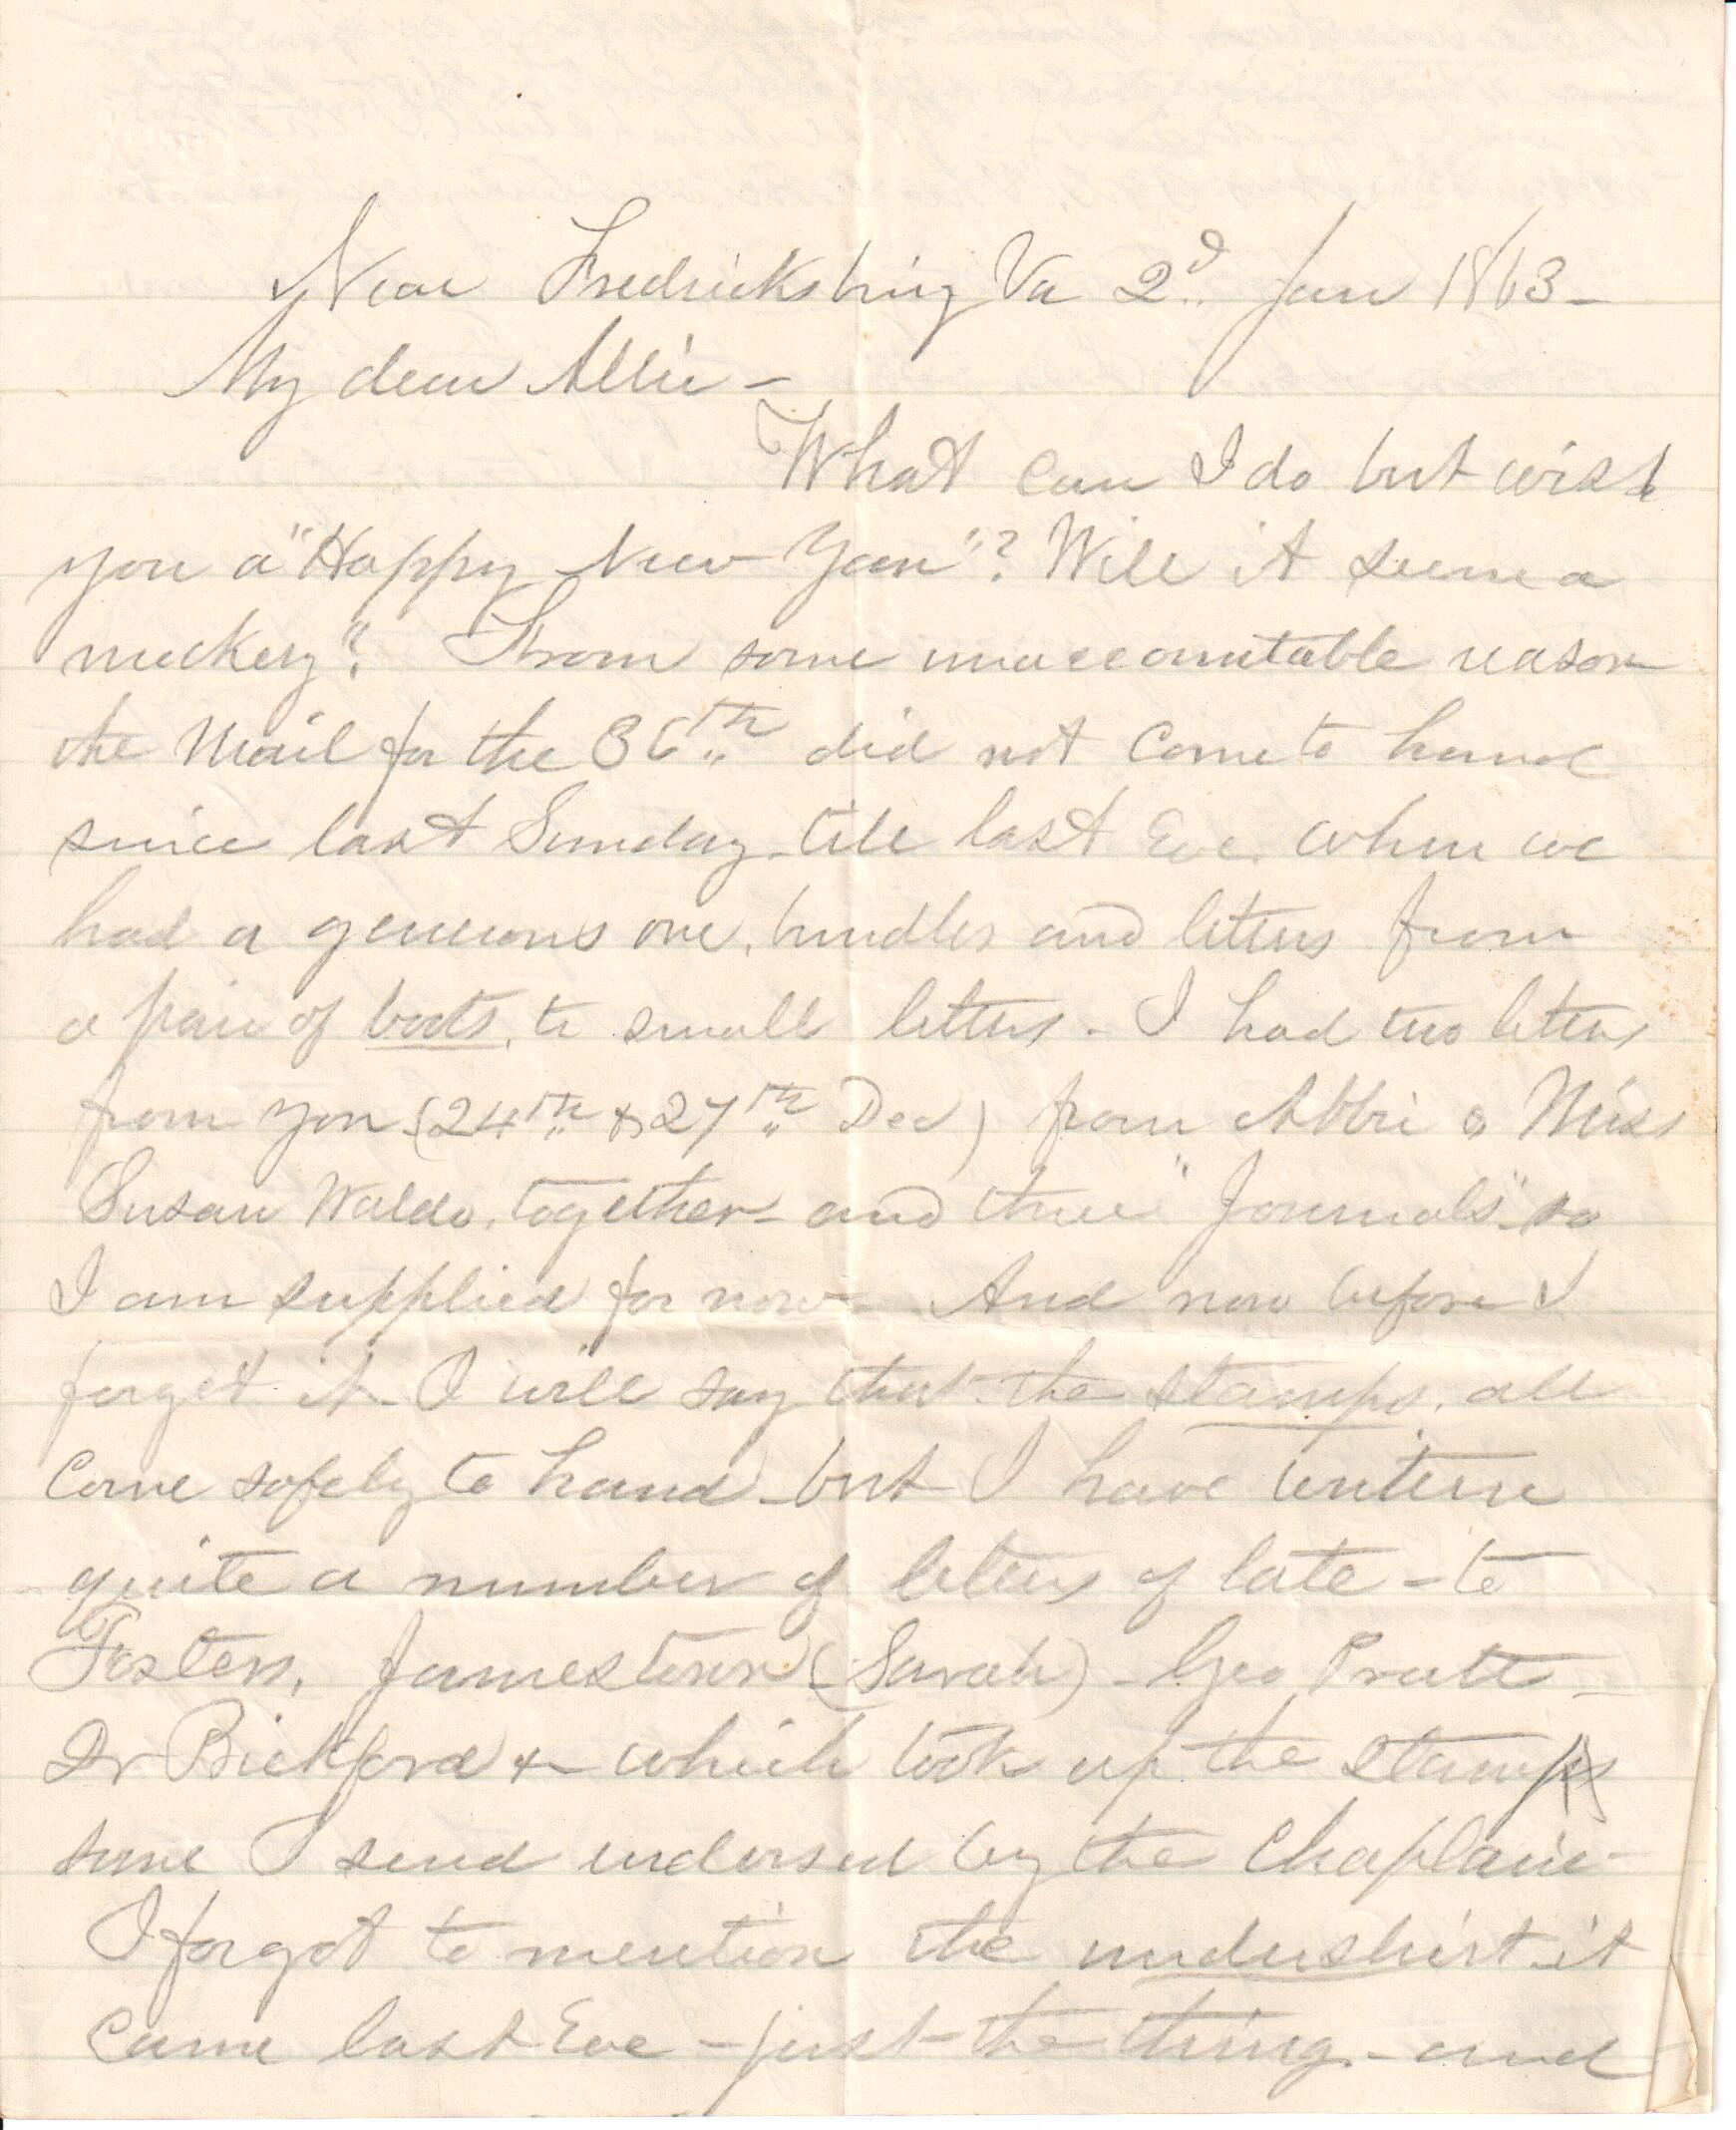 Near Fredricksburg Va 2d Jan 1863 -
My dear Allie -
What can I do but wish
you a "Happy New Year"? Will it seem a
mockery? From some unaccountable reason
the Mail for the 36th did not come to hand
since last Sunday - till last Eve. when we
had a generous one, bundles and letters from
a pair of boots, to small letters - I had two letters
from you (24th & 27th Dec) from Abbie & Miss
Susan Waldo, together - and three "Journals" - so
I am supplied for now - And now before I
forget it - I will say that the stamps, all
come safely to hand - but I have written
quite a number of letters of late - to
Fosters, Jamestown (Sarah) - Geo Pratt -
Dr Bickford &c which took up the stamps
some I send endorsed by the Chaplain -
I forgot to mention the undershirt - it
came last Eve - just the thing - and